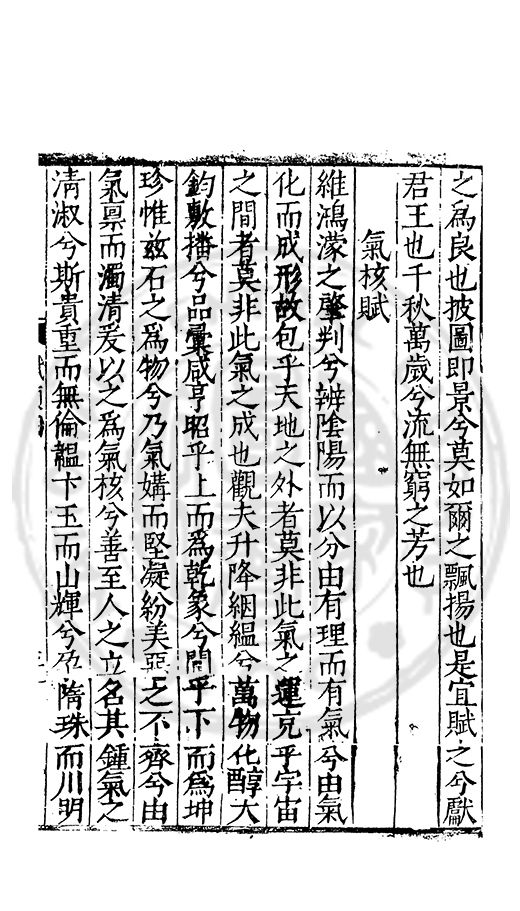 之爲良也披圖即景兮莫如爾之飄揚也是宜賦之兮獻
君王也千秋萬歲兮流無窮之芳也
氣核賦
維鴻濛之肇判兮辨陰陽而以分由有理而有氣兮由氣
化而成形故包乎天地之外者莫非此氣之運充乎宇宙
之間者莫非此氣之成也觀夫升降絪縕兮萬物化醇大
鈞敷播兮品彙咸亨昭乎上而爲乾象兮闢乎下而爲坤
珍惟玆石之爲物兮乃氣媾而堅凝紛美惡之不齊兮由
氣禀而濁清爰以之爲氣核兮善至人之立名其鍾氣之
清淑兮斯貴重而無倫韞卞玉而山輝兮孕隋珠而川明